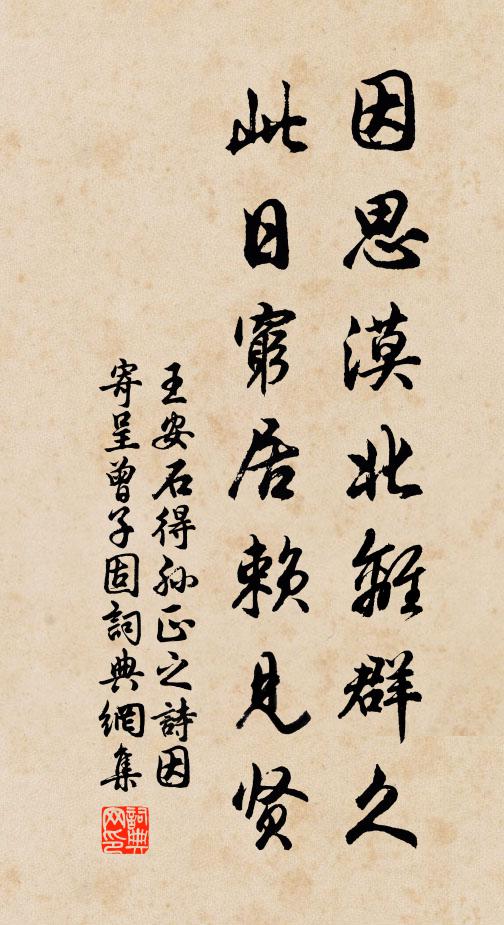 因思漠北離群久
此日窮居賴見贤
王安石得孙正之詩因
寄呈曾子固詞典網集
詞典
网印